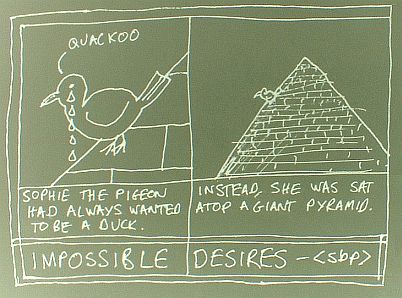 QUACKOO
SOPHIE THE PIGEON
HAD ALWAYS WANTED
TO BE A DUCK.
INSTEAD, SHE WAS SAT
ATOP A GIANT PYRAMID.
IMPOSSIBLE DESIRES - <sbp>